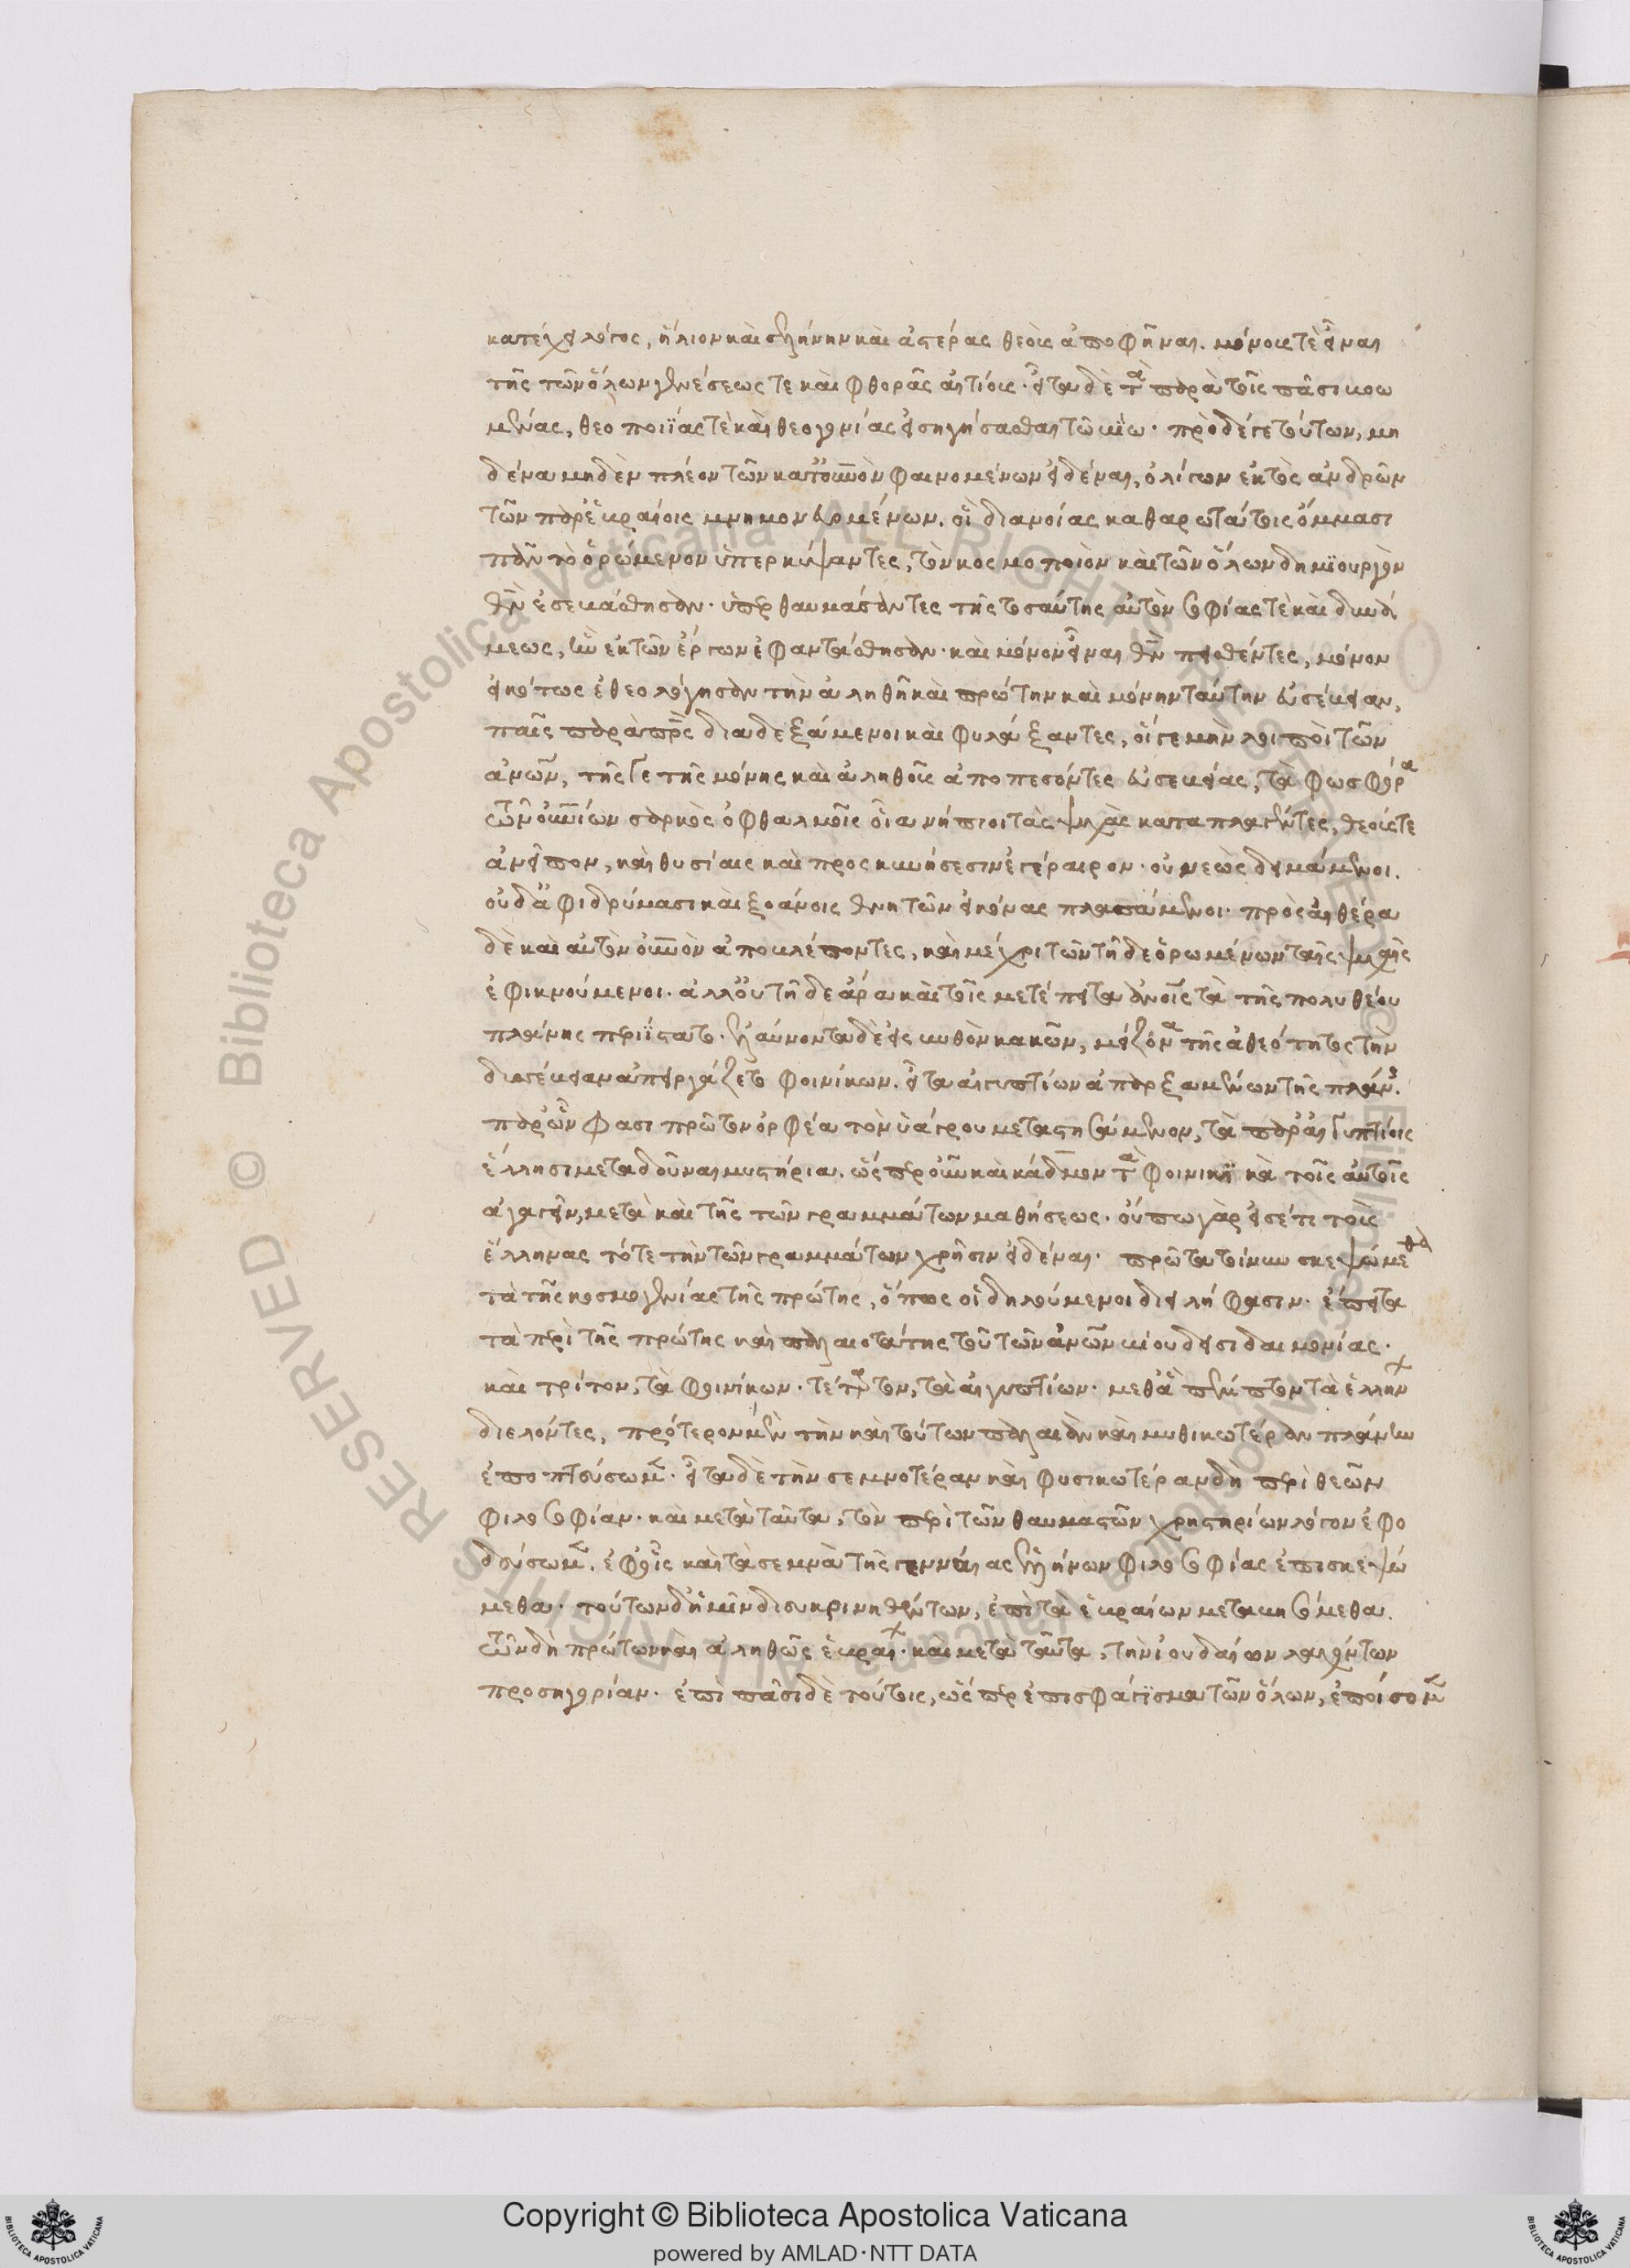 κατέχει λόγος, ἥλιον καὶ σελήνην καὶ ἀστέρας θεοὺς ἀποφῆναι. μόνους τὲ εἶναι
τῆς τῶν ὅλων γενέσεως τε καὶ φθορᾶς αἰτίους. εἶτα δὲ τὰς παρὰ τοῖς πᾶσι βοω
μένας, θεοποιΐας τὲ καὶ θεογονίας εἰσηγήσασθαι τῷ βίῳ. πρὸ δέ γε τούτων, μη
δένα μηδὲν πλέον τῶν κατ' οὐρανὸν φαινομένων εἰδέναι, ὀλίγων ἐκτὸς ἀνδρῶν
τῶν παρ' ἑβραίοις μνημονευομένων. οἳ διανοίας καθαρωτάτοις ὄμμασι
πᾶν τὸ ὁρώμενον ὑπερκύψαντες, τὸν κοσμοποιὸν καὶ τῶν ὅλων δημιουργὸν
θεὸν ἐσεβάσθησαν. ὑπερθαυμάσαντες τῆς τοσαύτης αὐτὸν σοφίας τὲ καὶ δυνά
μεως, ἣν ἐκ τῶν ἔργων ἐφαντάσθησαν. καὶ μόνον εἶναι θεὸν πεισθέντες, μόνον
εἰκότως ἐθεολόγησαν τὴν ἀληθῆ καὶ πρώτην καὶ μόνην ταύτην εὐσέβειαν,
παῖς παρὰ πρς διαδεξάμενοι καὶ φυλάξαντες, οἵ γε μὴν λοιποὶ τῶν
ἀνων, τῆς γε τῆς μόνης καὶ ἀληθοῦς ἀποπεσόντες εὐσεβείας, τὰ φωσφόρα
τῶν οὐρανίων σαρκὸς ὀφθαλμοῖς οἷα νήπιοι τὰς ψυχὰς καταπλαγέντες, θεούς τε
ἀνεῖπον, καὶ θυσίαις καὶ προσκυνήσεσιν ἐγέραιρον. οὐ νεὼς δειμάμενοι.
οὐδ' ἀφιδρύμασι καὶ ξοάνοις θνητῶν εἰκόνας πλασάμενοι. πρὸς αἰθέρα
δὲ καὶ αὐτὸν οὐρανὸν ἀποβλέποντες, καὶ μέχρι τῶν τῇδε ὁρωμένων ταῖς ψυχαῖς
ἐφικνούμενοι. ἀλλ' οὐ τῇδε ἄρα καὶ τοῖς μετέπειτα ἀνοις τὰ τῆς πολυθέου
πλάνης περιΐστατο. ἐλαύνοντα δὲ εἰς βυθὸν κακῶν, μείζονα τῆς ἀθεότητος τὴν
δυσσέβειαν ἀπειργάζετο φοινίκων. εἶτα αἰγυπτίων ἀπαρξαμένων τῆς πλάνης.
παρ' ὧν φασι πρῶτον ὀρφέα τὸν ὑάγρου μεταστησάμενον, τὰ παρ' αἰγυπτίοις
ἕλλησι μεταδοῦναι μυστήρια. ὥσπερ οὖν καὶ κάδμον τὰ φοινικικὰ τοῖς αὐτοῖς
ἀγαγεῖν, μετὰ καὶ τῆς τῶν γραμμάτων μαθήσεως. οὔπω γὰρ εἰσέτι τοὺς
ἕλληνας τότε τὴν τῶν γραμμάτων χρῆσιν εἰδέναι. πρῶτα τοίνυν σκεψώμεθα
τὰ τῆς κοσμογενίας τῆς πρώτης, ὅπως οἱ δηλούμενοι διειλήφασιν. ἔπειτα
τὰ περὶ τῆς πρώτης καὶ παλαιοτάτης τοῦ τῶν ἀνων βίου δεισιδαιμονίας.
καὶ τρίτον, τὰ φοινίκων. τέταρτον, τὰ αἰγυπτίων. μεθ' ἃ πέμπτον τὰ ἑλλήν
διελόντες, πρότερον μὲν τὴν καὶ τούτων παλαιὰν καὶ μυθικωτέραν πλάνην
ἐποπτεύσωμεν. εἶτα δὲ τὴν σεμνοτέραν καὶ φυσικωτέραν δὴ περὶ θεῶν
φιλοσοφίαν. καὶ μετὰ ταῦτα, τὸν περὶ τῶν θαυμαστῶν χρηστηρίων λόγον ἐφο
δεύσωμεν. ἐφ' οἷς καὶ τὰ σεμνὰ τῆς γενναίας ἑλλήνων φιλοσοφίας ἐπισκεψώ
μεθα. τούτων δ' ἡμῖν διευκρινηθέντων, ἐπὶ τὰ ἑβραίων μεταβησόμεθα.
τῶν δὴ πρώτων καὶ ἀληθῶς ἑβραί. καὶ μετὰ ταῦτα, τὴν ἰουδαίων λαχόντων
προσηγορίαν. ἐπὶ πᾶσι δὲ τούτοις, ὥσπερ ἐπισφάγισμα τῶν ὅλων, ἐποίσομεν
Copyright © Biblioteca Apostolica Vaticana
powered by AMLAD·NTT DATA